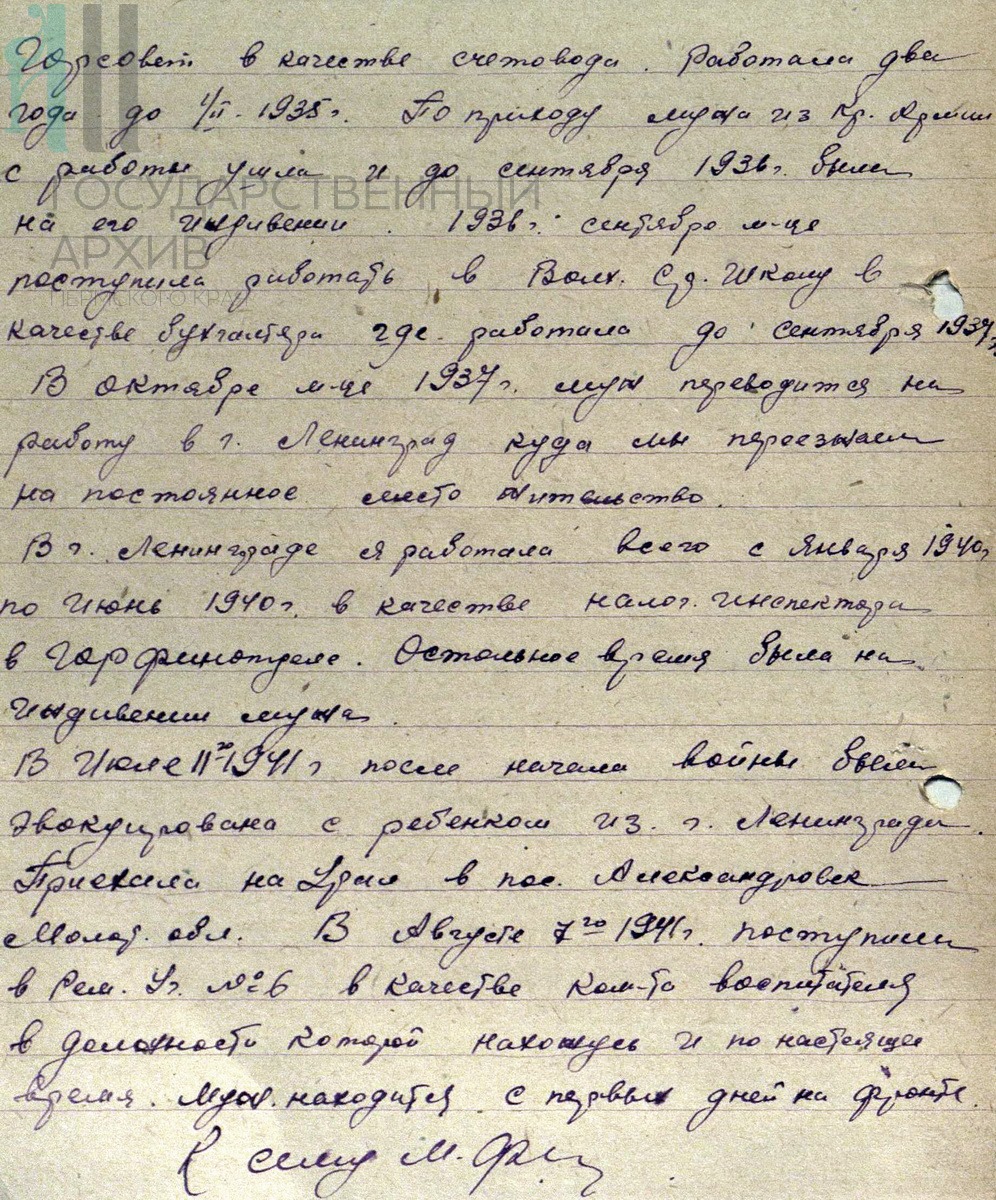 Горсовет в качестве счетовода. Работала два
года до 1/II. 1935г. По приходу мужа из Кр. Армии
с работы ушла и до сентября 1936г. была
ГОСУДАРСТВЕННЫЙ
на его иждивении. 1936г. сентябре м-це
АРХИВ
поступила работать в Волх. Ср. Школу в
ПЕРМСКОГО КРАЯ
качестве бухгалтера где работала до сентября 1937г.
В октябре м-це 1937г. муж переводится на
работу в г. Ленинград куда мы переезжаем
на постоянное место жительство.
В г. Ленинграде я работала всего с Января 1940г
по Июнь 1940г. в качестве налог. инспектора
в Горфинотделе. Остальное время была на
иждивении мужа.
В Июле 11го 1941г после начала войны была
эвокуирована с ребенком из г. Ленинграда.
Приехала на Урал в пос. Александровск
Молот. обл. В Августе 7го 1941г. поступила
в Рем. Уч. №6 в качестве ком-та воспитателя
в должности которой нахожусь и по настоящее
время. Муж находится с первых дней на фронте.
К сему М.